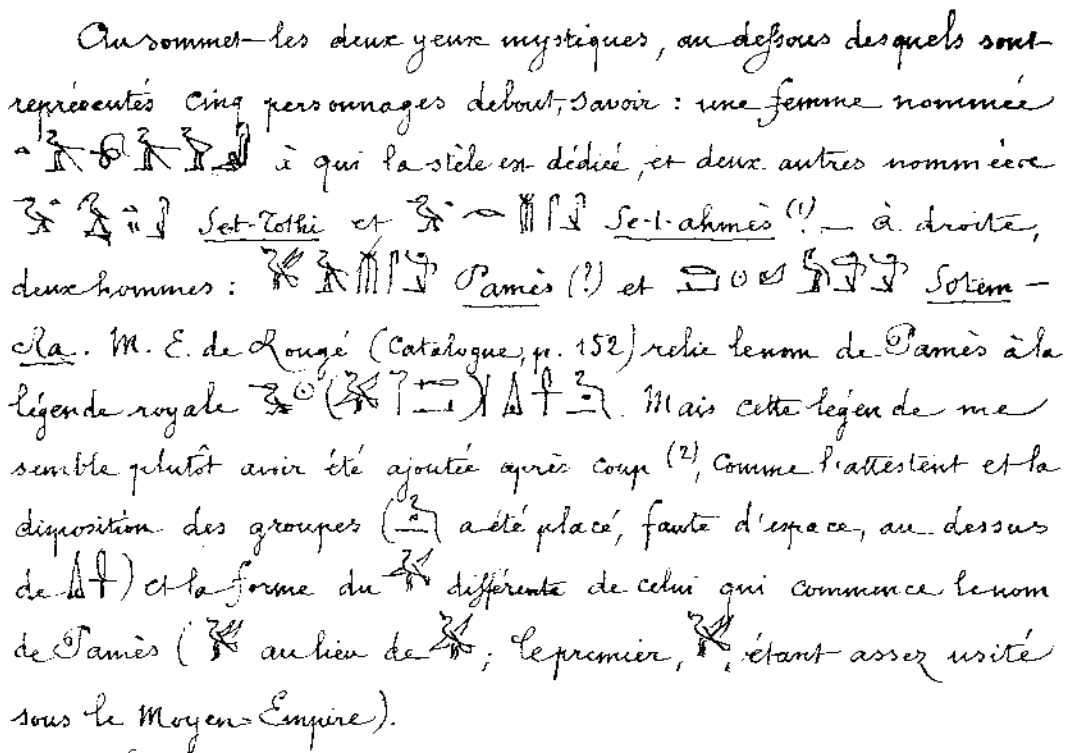 Au sommet les deux yeux mystiques, au dessous desquels sont
représentés cinq personnages debout, savoir : une femme nommée
à qui la stèle est dédiée, et deux autres nommées
Set-Tothi et Se-t-ahmès (1) – à droite,
deux hommes : Pamès (?) et Sotem-
Ra. M. E. de Rougé (Catalogue, p. 152) relie le nom de Pamès à la
légende royale . Mais cette légende me
semble plutôt avoir été ajoutée après coup (2), comme l'attestent et la
disposition des groupes ( a été placé, faute d'espace, au dessus
de ) et la forme du différente de celui qui commence le nom
de Pamès ( au lieu de ; le premier, , étant assez usité
sous le Moyen-Empire).